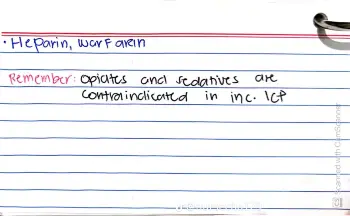 • Heparin, warfarin
Remember: Opiates and sedatives are
contraindicated in inc. ICP
Scanned with CamScanner
CS